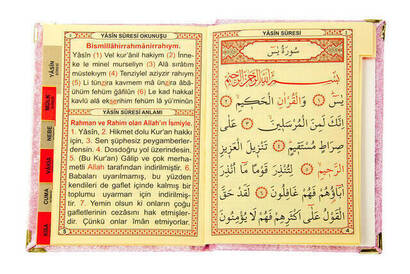 YÂSÎN SÛRESİ OKUNUŞU
Bismillâhirrahmânirrahıym.
Yâsîn (1) Vel kur'ânil hakiym (2) İnne-
ke le minel murseliyn (3) Alâ sırâtım
müstekıym (4) Tenziylel aziyzir rahıym
(5) Li tünzira kavmem mâ ünzira âbâ-
ühüm fehüm gâfilûn (6) Le kad hakkal
kavlü alâ ekserihim fehüm lâ yü'minûn
YÂSÎN SÛRESİ ANLAMI
Rahman ve Rahim olan Allah'ın İsmiyle.
1. Yâsîn, 2. Hikmet dolu Kur'an hakkı
için, 3. Sen şüphesiz peygamberler-
densin. 4. Dosdoğru yol üzerindesin.
5. (Bu Kur'an) Gâlip ve çok merha-
metli Allah tarafından indirilmiştir. 6.
Babaları uyarılmamış, bu yüzden
kendileri de gaflet içinde kalmış bir
toplumu uyarman için indirilmiş-
tir. 7. Yemin olsun ki onların çoğu
gafletlerinin cezasını hak etmişler-
dir. Çünkü onlar îman etmiyorlar.
YÂSÎN
MÜLK
NEBE
VAKIA
CUMA
KISA
YÂSÎN SÛRESİ
سُورَةُ يٰسٓ
بِسْمِ اللّٰهِ الرَّحْمٰنِ الرَّحِيمِ
يٰسٓ ۝ وَالْقُرْاٰنِ الْحَكِيمِ ۝
اِنَّكَ لَمِنَ الْمُرْسَلِينَ ۝ عَلٰى
صِرَاطٍ مُسْتَقِيمٍ ۝ تَنْزِيلَ الْعَزِيزِ
الرَّحِيمِ ۝ لِتُنْذِرَ قَوْمًا مَٓا اُنْذِرَ
اٰبَٓاؤُهُمْ فَهُمْ غَافِلُونَ ۝ لَقَدْ حَقَّ
الْقَوْلُ عَلٰٓى اَكْثَرِهِمْ فَهُمْ لَا يُؤْمِنُونَ